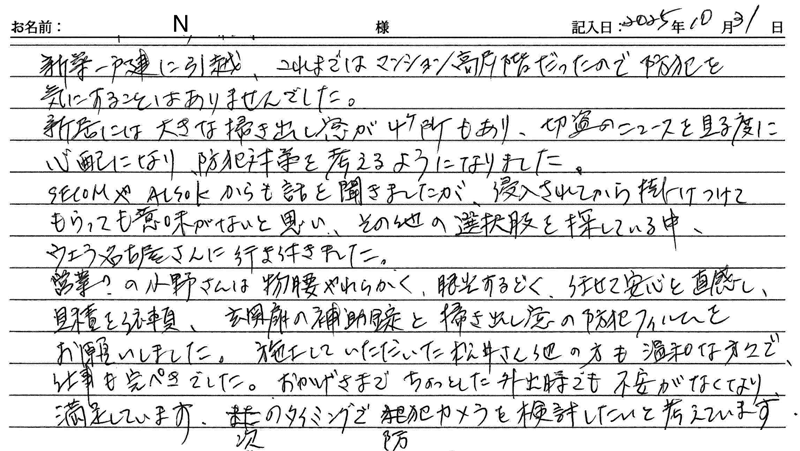 お名前： N 様 記入日：2025年10月31日
新築一戸建に引越、これまではマンション高層階だったので防犯を
気にすることはありませんでした。
新居には大きな掃き出し窓が4ヶ所もあり、切盗のニュースを見る度に
心配になり防犯対策を考えるようになりました。
SECOMやALSOKからも話を聞きましたが、侵入されてから掛けつけて
もらっても意味がないと思い、その他の選択肢を探している中、
ウェラ名古屋さんに行き付きました。
営業？の小野さんは物腰やわらかく、眼光するどく、任せて安心と直感し、
見積を依頼、玄関扉の補助錠と掃き出し窓の防犯フィルムを
お願いしました。施工していただいた松井さん他の方も温和な方々で、
仕事も完ぺきでした。おかげさまでちょっとした外出時でも不安がなくなり
満足しています。次のタイミングで防犯カメラを検討したいと考えています。